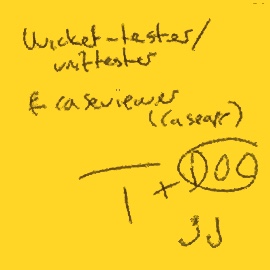 Wicket-tester/
unittester
& caseviewer
(caseapp)
T + DOO
JJ